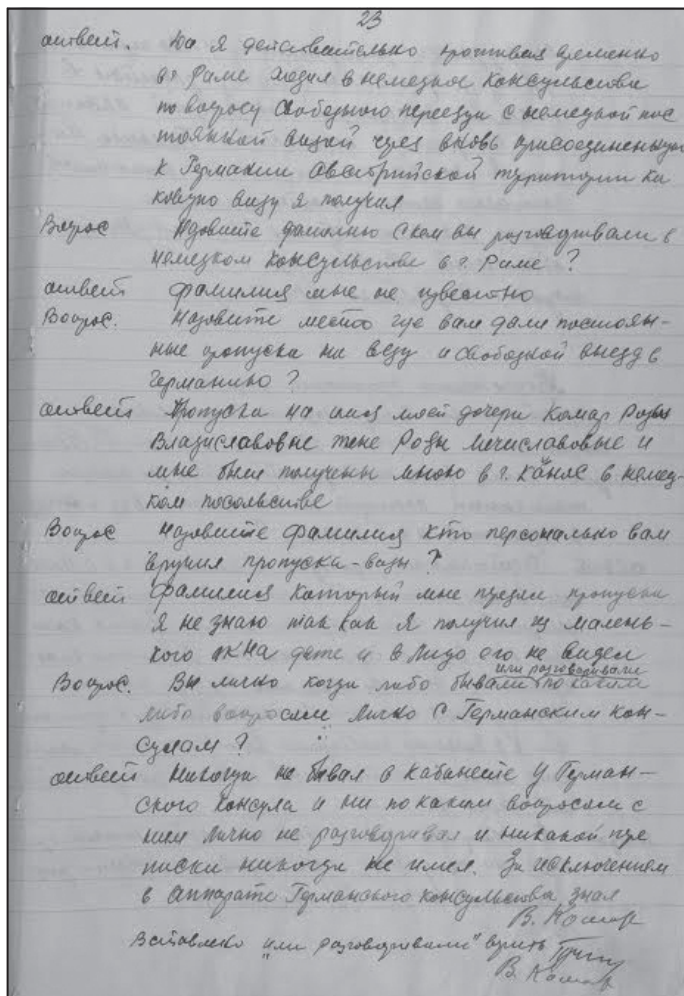 23
ответ. Да я действительно проживая временно
в г. Риме ходил в немецкое консульство
по вопросу свободного переезда с немецкой пос
тоянной визой через вновь присоединеную
к Германии Австрийской территории ка
ковую визу я получил
Вопрос Назовите фамилию с кем вы разговаривали в
немецком консульстве в г. Риме?
ответ фамилия мне не известно
Вопрос. Назовите место где вам дали постоян-
ные пропуска на везу и свободной выезд в
Германию?
ответ Пропуска на имя моей дочери Комар Розы
Владиславовне жене Розы Мечиславовне и
мне были получены мною в г. в немец-
ком посольстве
Вопрос Назовите фамилия кто персонально вам
вручил пропуска-визы?
ответ фамилия который мне пропуска
я не знаю так как я получил из малень-
кого окна и в лицо его не видел
или разговаривали
Вопрос. Вы лично когда либо бывали по каким
либо вопросам лично с Германским кон-
сулам?
ответ Никогда не бывал в кабинете у Герман-
ского консула и ни по каким вопросам с
ним лично не разговаривал и никакой пре
писки никогда не имел. За исключением
в аппарате Германского консульства знал
В. Комар
Вставлено "или разговаривали" верить
В. Комар